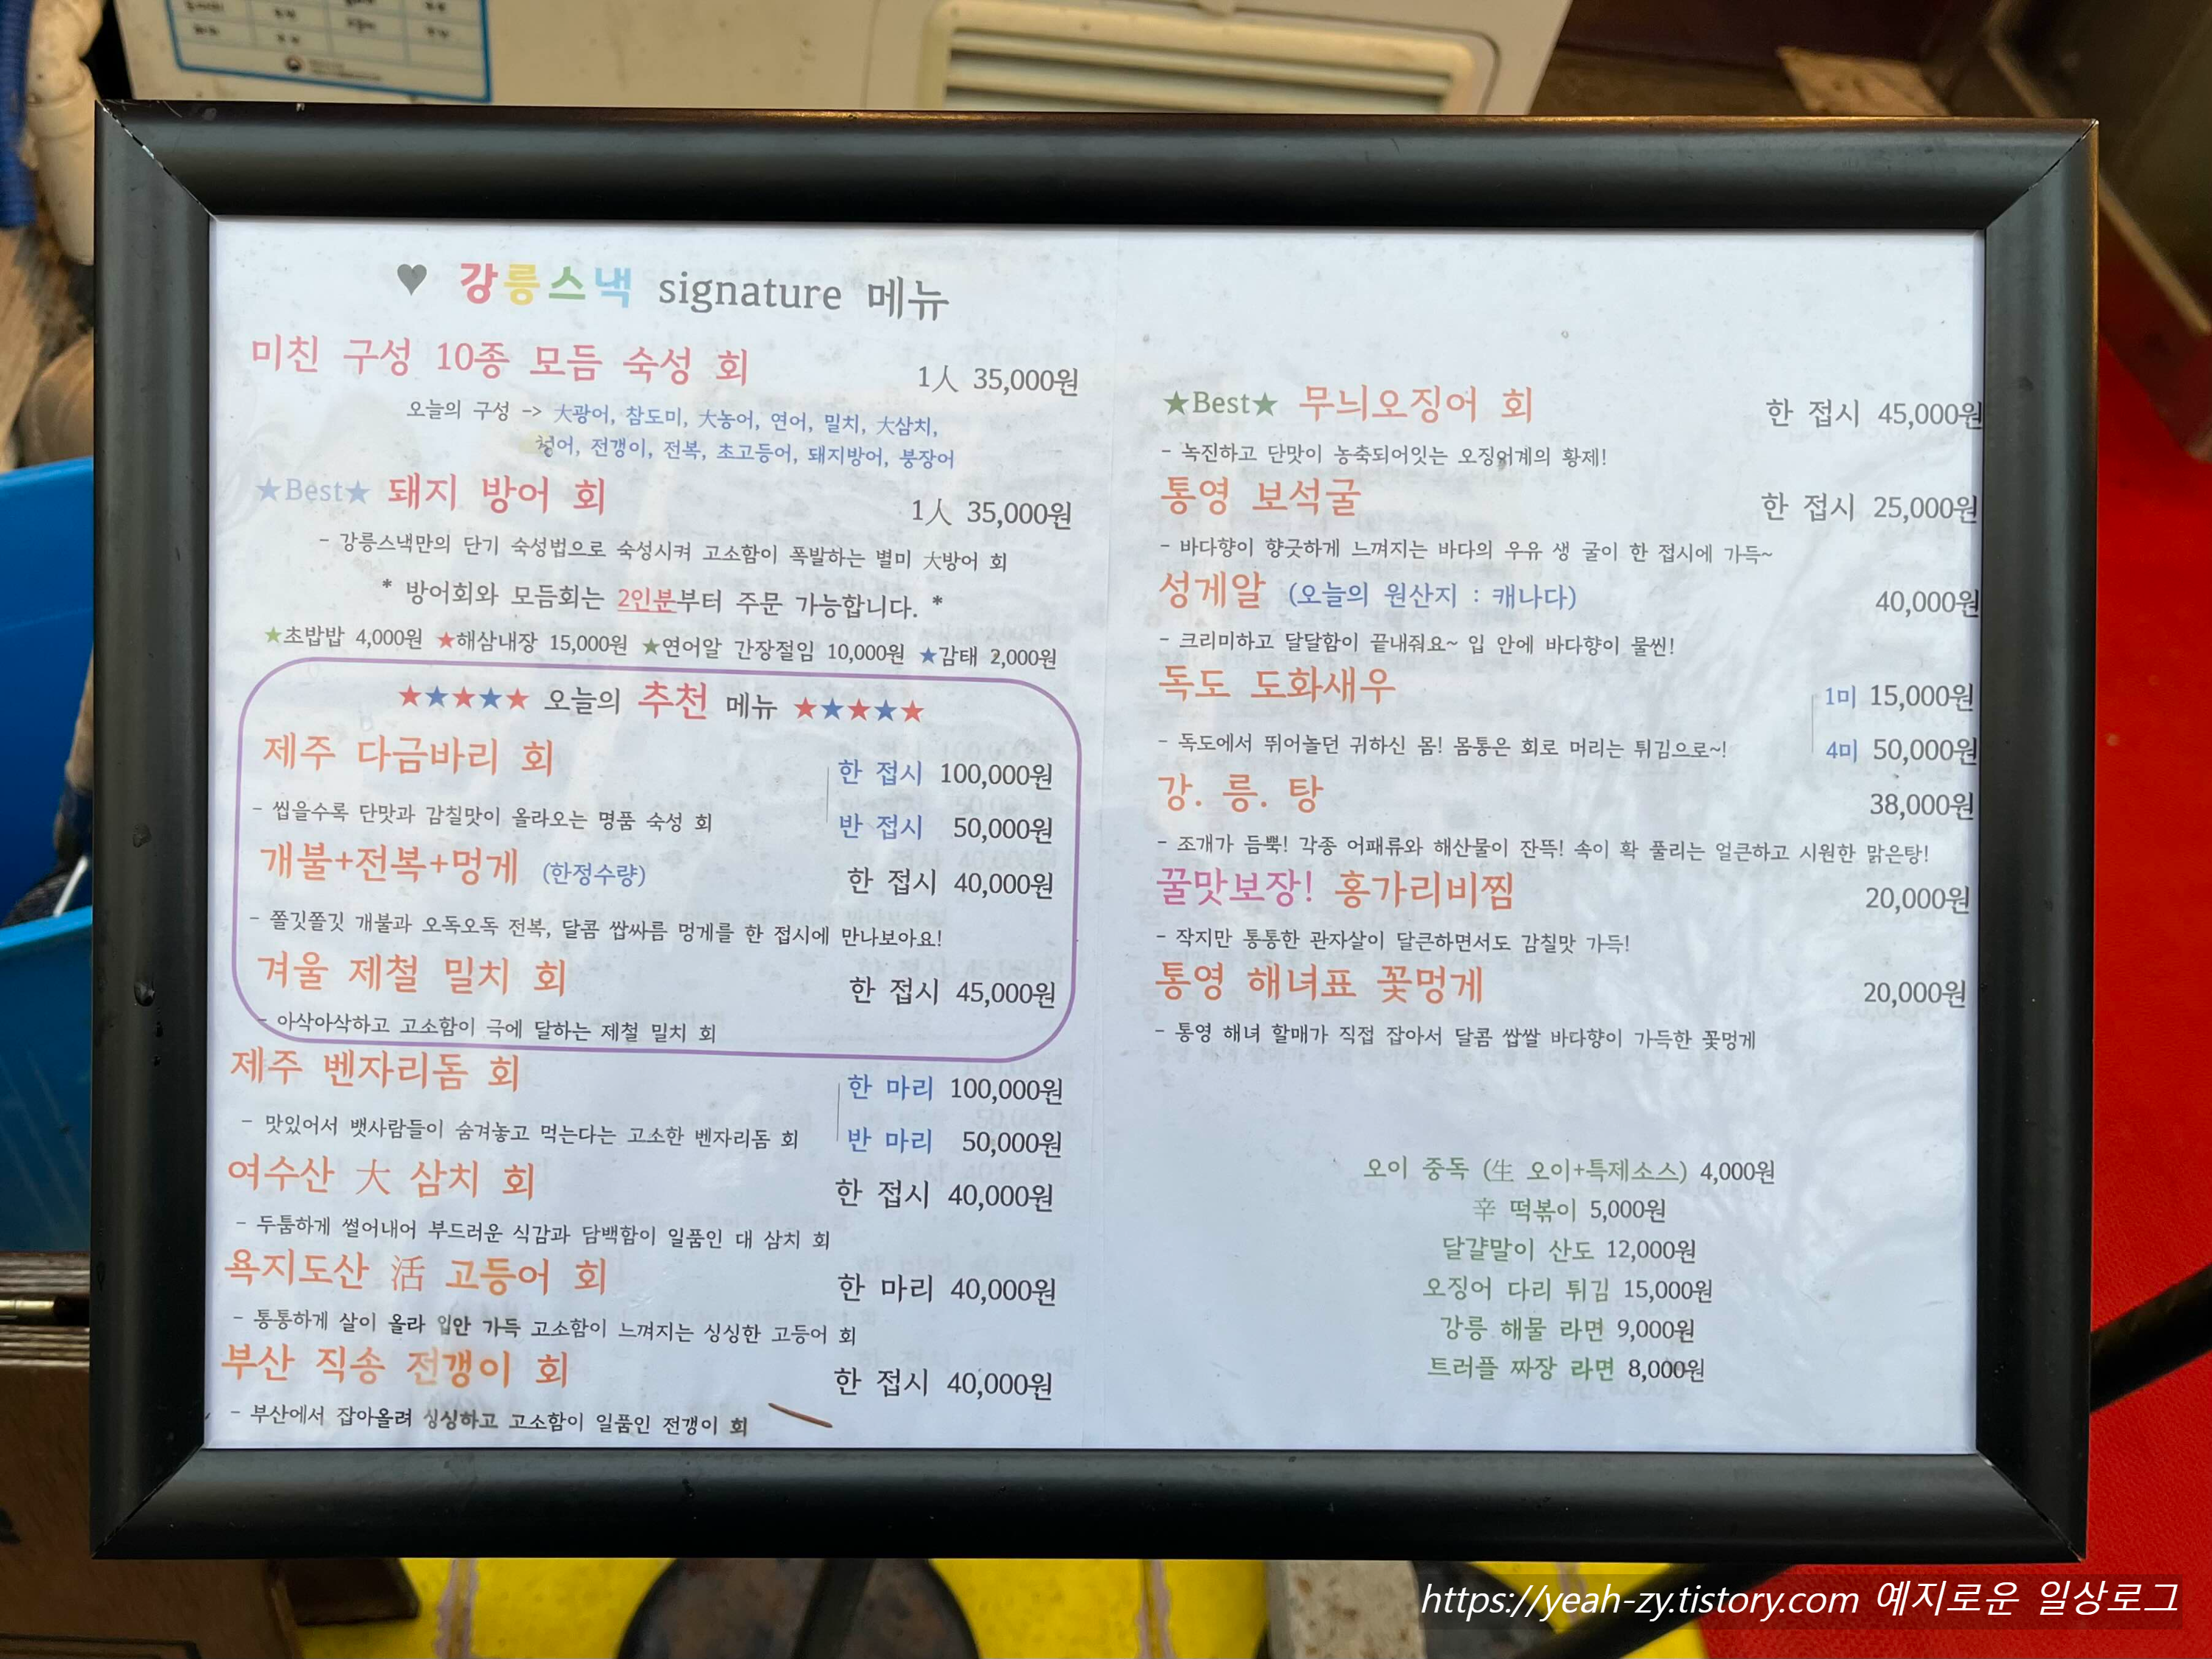 ♥ 강릉스낵 signature 메뉴
미친 구성 10종 모듬 숙성 회 1人 35,000원
오늘의 구성 -> 大광어, 참도미, 大농어, 연어, 밀치, 大삼치,
청어, 전갱이, 전복, 초고등어, 돼지방어, 붕장어
★Best★ 돼지 방어 회 1人 35,000원
- 강릉스낵만의 단기 숙성법으로 숙성시켜 고소함이 폭발하는 별미 大방어 회
* 방어회와 모듬회는 2인분부터 주문 가능합니다. *
★초밥밥 4,000원 ★해삼내장 15,000원 ★연어알 간장절임 10,000원 ★감태 2,000원
★★★★★ 오늘의 추천 메뉴 ★★★★★
제주 다금바리 회 한 접시 100,000원
반 접시 50,000원
- 씹을수록 단맛과 감칠맛이 올라오는 명품 숙성 회
개불+전복+멍게 (한정수량) 한 접시 40,000원
- 쫄깃쫄깃 개불과 오독오독 전복, 달콤 쌉싸름 멍게를 한 접시에 만나보아요!
겨울 제철 밀치 회 한 접시 45,000원
- 아삭아삭하고 고소함이 극에 달하는 제철 밀치 회
제주 벤자리돔 회 한 마리 100,000원
반 마리 50,000원
- 맛있어서 뱃사람들이 숨겨놓고 먹는다는 고소한 벤자리돔 회
여수산 大 삼치 회 한 접시 40,000원
- 두툼하게 썰어내어 부드러운 식감과 담백함이 일품인 대 삼치 회
욕지도산 活 고등어 회 한 마리 40,000원
- 통통하게 살이 올라 입안 가득 고소함이 느껴지는 싱싱한 고등어 회
부산 직송 전갱이 회 한 접시 40,000원
- 부산에서 잡아올려 싱싱하고 고소함이 일품인 전갱이 회
★Best★ 무늬오징어 회 한 접시 45,000원
- 녹진하고 단맛이 농축되어잇는 오징어계의 황제!
통영 보석굴 한 접시 25,000원
- 바다향이 향긋하게 느껴지는 바다의 우유 생 굴이 한 접시에 가득~
성게알 (오늘의 원산지 : 캐나다) 40,000원
- 크리미하고 달달함이 끝내줘요~ 입 안에 바다향이 물씬!
독도 도화새우 1미 15,000원
4미 50,000원
- 독도에서 뛰어놀던 귀하신 몸! 몸통은 회로 머리는 튀김으로~!
강. 릉. 탕 38,000원
- 조개가 듬뿍! 각종 어패류와 해산물이 잔뜩! 속이 확 풀리는 얼큰하고 시원한 맑은탕!
꿀맛보장! 홍가리비찜 20,000원
- 작지만 통통한 관자살이 달큰하면서도 감칠맛 가득!
통영 해녀표 꽃멍게 20,000원
- 통영 해녀 할매가 직접 잡아서 달콤 쌉쌀 바다향이 가득한 꽃멍게
오이 중독 (生 오이+특제소스) 4,000원
辛 떡볶이 5,000원
달걀말이 산도 12,000원
오징어 다리 튀김 15,000원
강릉 해물 라면 9,000원
트러플 짜장 라면 8,000원
https://yeah-zy.tistory.com 예지로운 일상로그